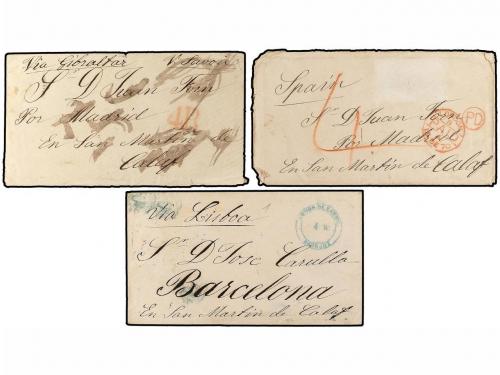 Via Gibraltar
p. Savoie
Sr. D Juan Torn
Por Madrid
En San Martin de
Calaf
Spain
4
PD
Sr. D Juan Torn
Por Madrid
En San Martin de Calaf
Via Lisboa
Sr. D Jose Carulla
Barcelona
En San Martin de Calaf